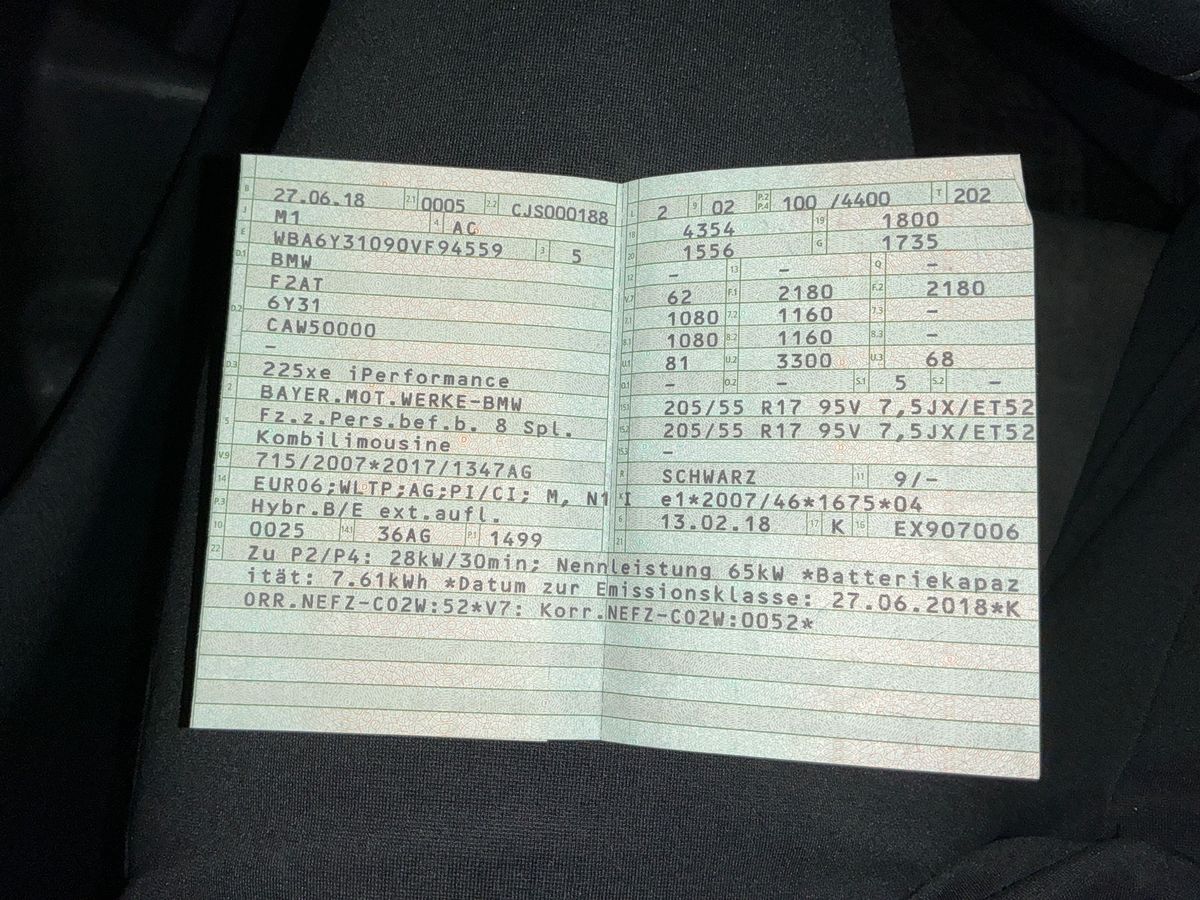 B 27.06.18 2.1 0005 2.2 CJS000188
J M1 4 AC
E WBA6Y31090VF94559 3 5
D.1 BMW
F2AT
6Y31
D.2 CAW50000
–
D.3 225xe iPerformance
2 BAYER.MOT.WERKE-BMW
5 Fz.z.Pers.bef.b. 8 Spl.
Kombilimousine
V.9 715/2007*2017/1347AG
14 EURO6;WLTP;AG;PI/CI; M, N1 I
P.3 Hybr.B/E ext.aufl.
10 0025 14.1 36AG P.1 1499
L 2 9 02 P.2 P.4 100 /4400 T 202
18 4354 19 1800
20 1556 G 1735
12 – 13 – Q –
V.7 62 F.1 2180 F.2 2180
7.1 1080 7.2 1160 7.3 –
8.1 1080 8.2 1160 8.3 –
U.1 81 U.2 3300 U.3 68
O.1 – O.2 – S.1 5 S.2 –
15.1 205/55 R17 95V 7,5JX/ET52
15.2 205/55 R17 95V 7,5JX/ET52
15.3 –
R SCHWARZ 11 9/-
K e1*2007/46*1675*04
6 13.02.18 17 K 16 EX907006
21
22 Zu P2/P4: 28kW/30min; Nennleistung 65kW *Batteriekapaz
ität: 7.61kWh *Datum zur Emissionsklasse: 27.06.2018*K
ORR.NEFZ-CO2W:52*V7: Korr.NEFZ-CO2W:0052*